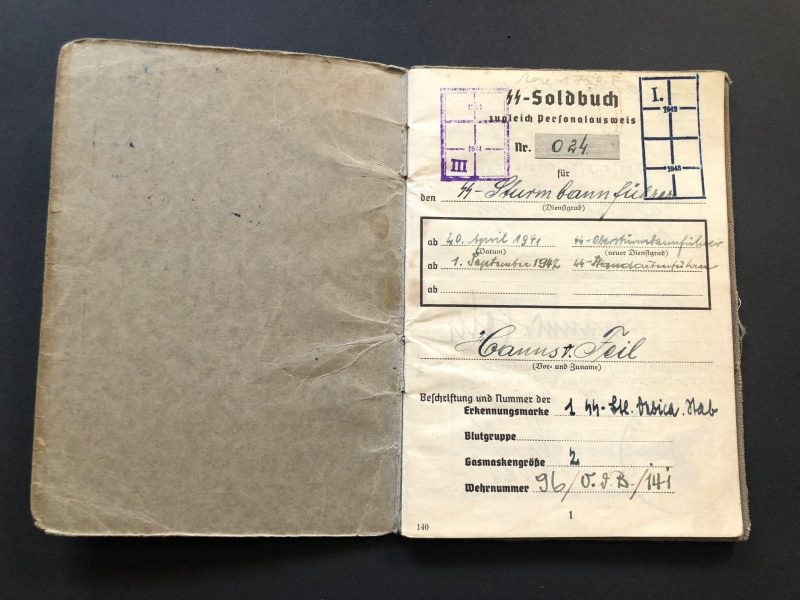 ᛋᛋ-Soldbuch
zugleich Personalausweis
Nr. 024
für
den ᛋᛋ-Sturmbannführer
(Dienstgrad)
ab 20. April 1941 ᛋᛋ-Obersturmbannführer
(Datum) (neuer Dienstgrad)
ab 1. September 1942 ᛋᛋ-Standartenführer
ab
Hanns Feil
(Vor- und Zuname)
Beschriftung und Nummer der
Erkennungsmarke 1 ᛋᛋ-
Blutgruppe
Gasmaskengröße 2
Wehrnummer 96/V.d.B./141
140
1
III
1941
I.
1942
1943